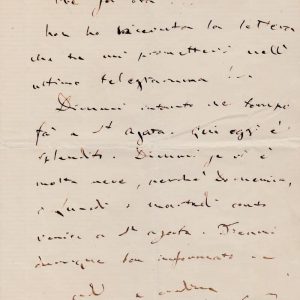 non ho ricevuta la lettera
che tu mi promettevi nell'
ultimo telegramma!..
Dimmi intanto che tempo
fà a St Agata. Qui oggi è
splendido. Dimmi se vi è
molta neve, perchè Domenica,
o Lunedì o martedì conto
venire a St Agata. Tienmi
dunque ben informato